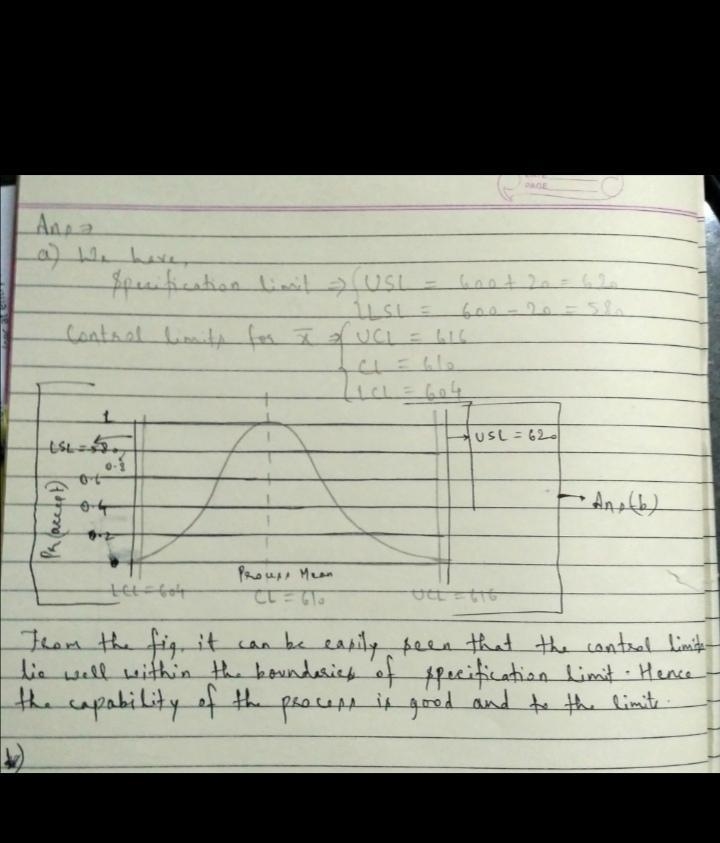 PAGE
Ans ⇒
a) We have,
Specification limit ⇒ { USL = 600 + 20 = 620
LSL = 600 - 20 = 580
Control limits for x̄ ⇒ { UCL = 616
CL = 610
LCL = 604
1
LSL = 580
USL = 620
0.8
0.6
0.4
Ans(b)
0.2
0
Pr(accept)
Process Mean
LCL = 604 CL = 610 UCL = 616
From the fig. it can be easily seen that the control limits
lie well within the boundaries of specification limit. Hence
the capability of the process is good and to the limits.
b)